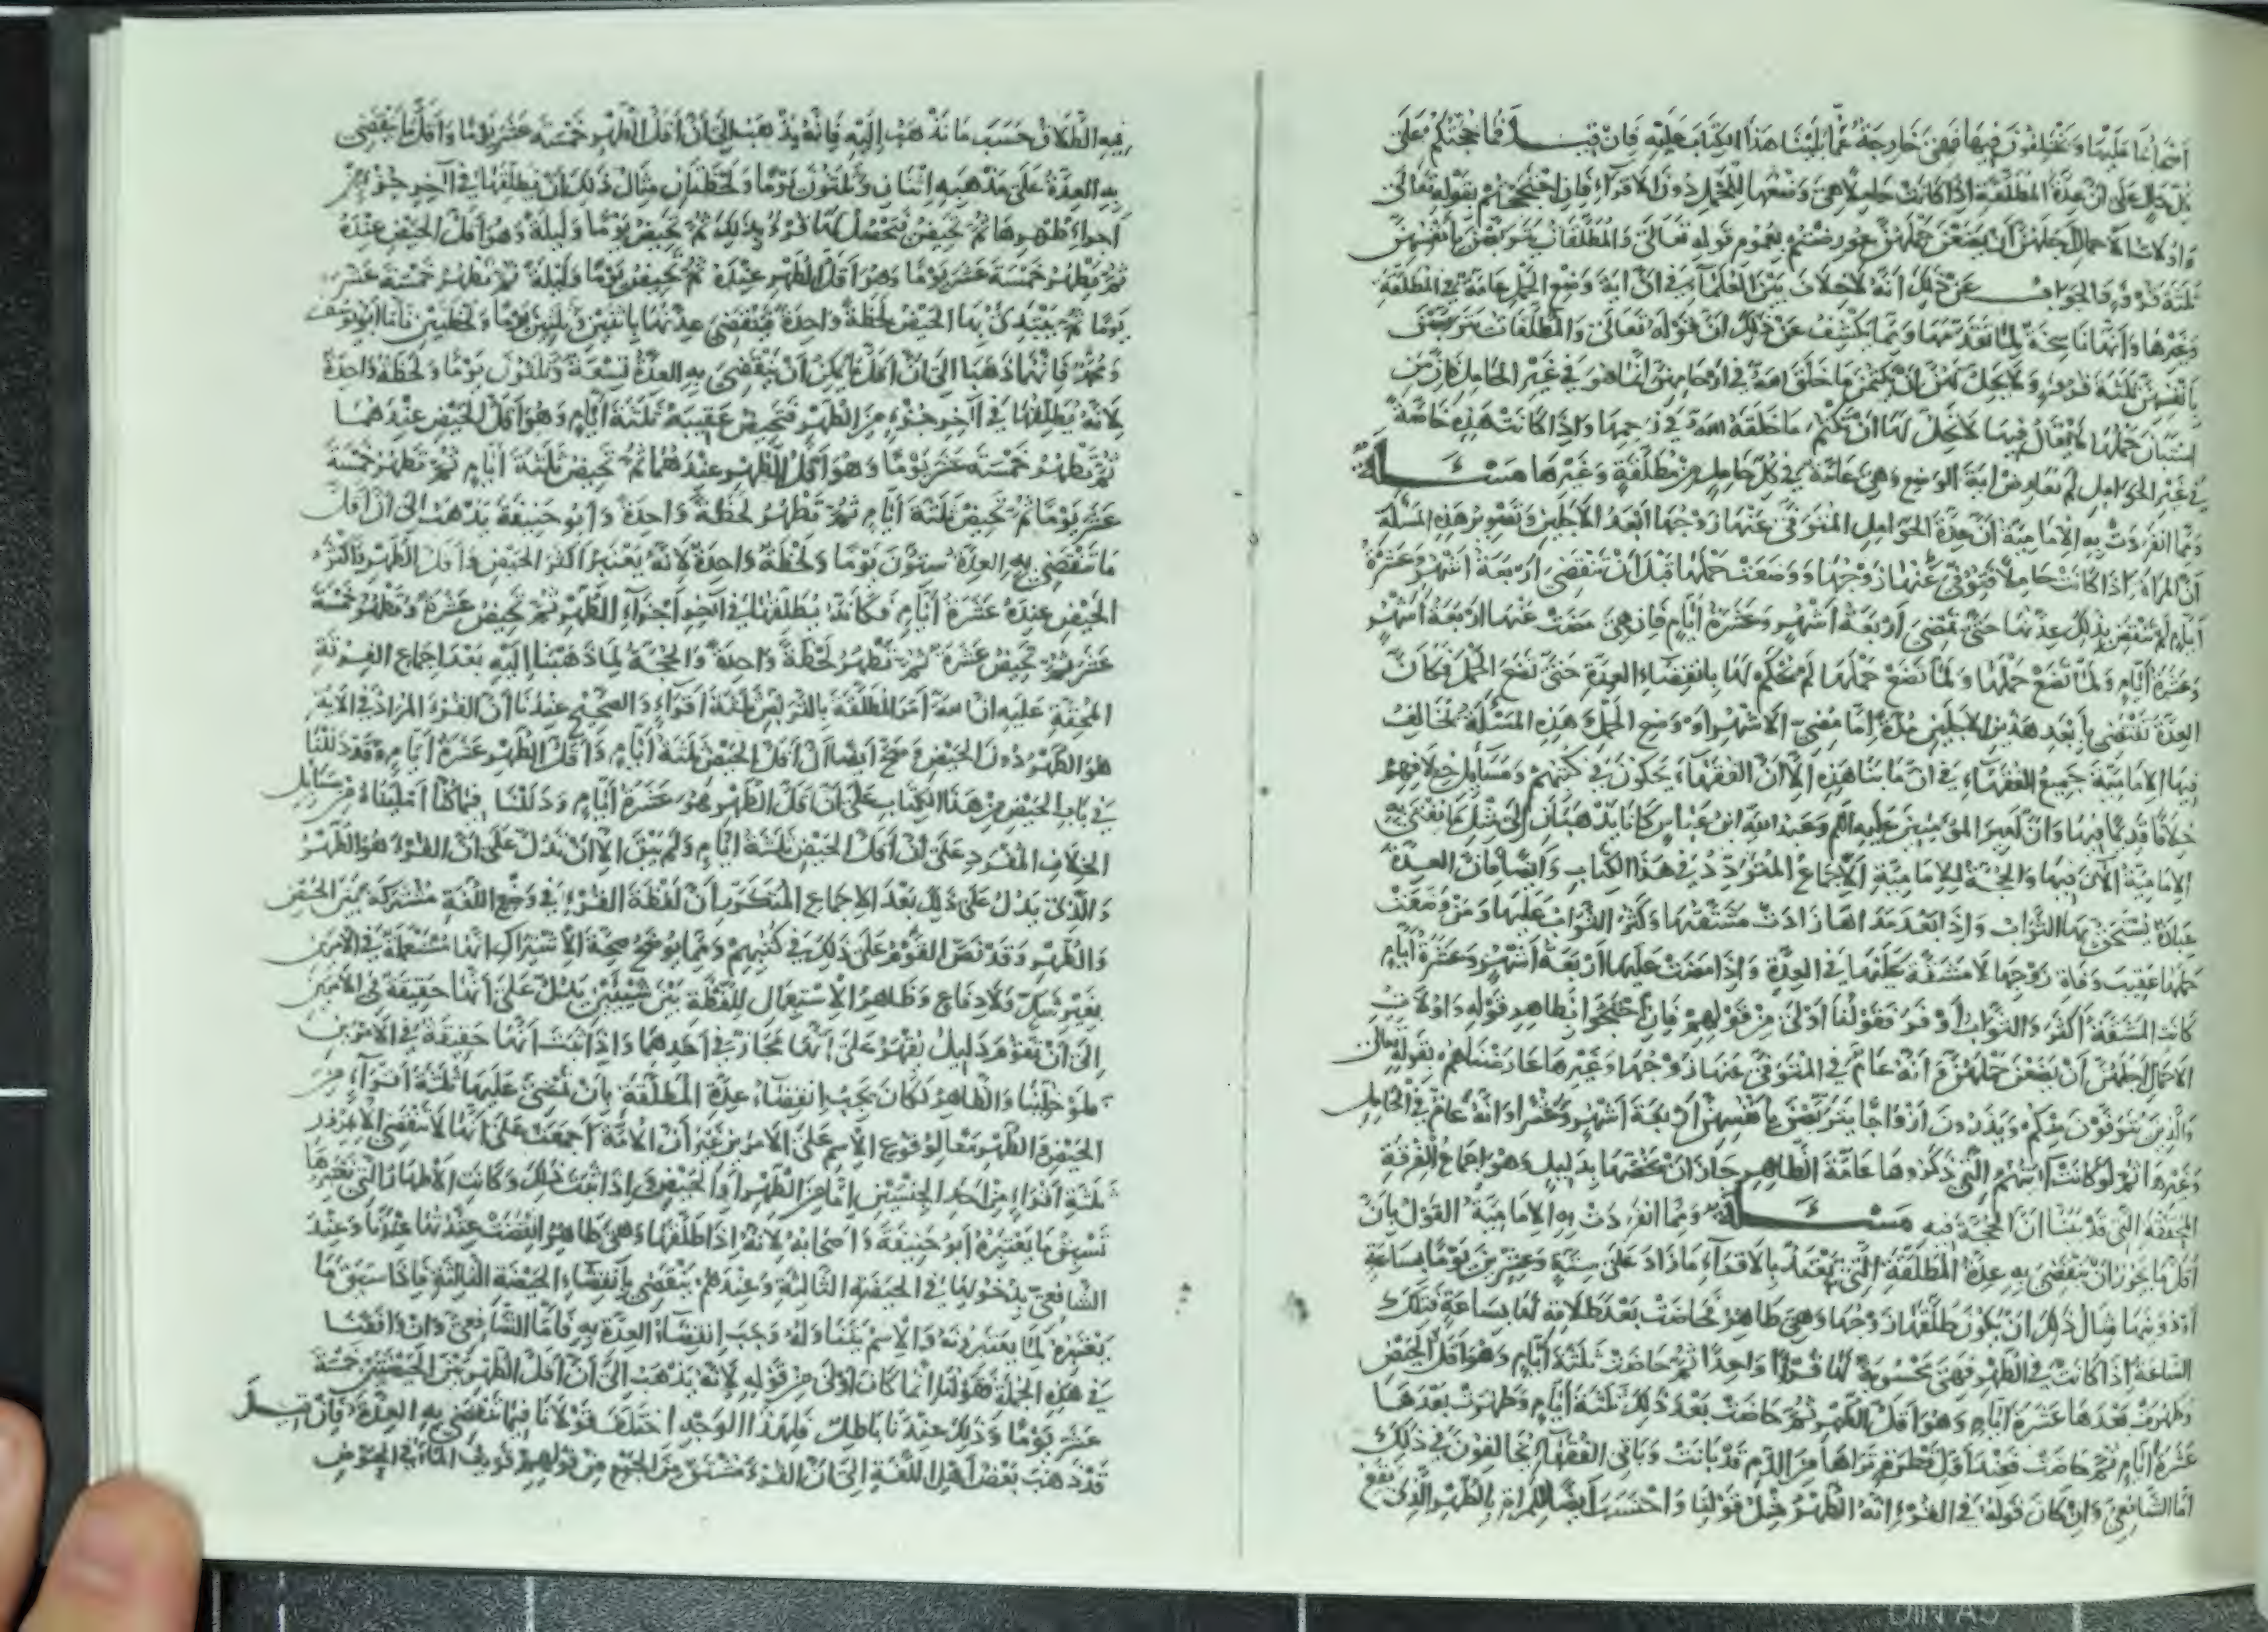 اصحابنا عليها ويختلفون فيها فهي خارجة عما بنينا هذا الكتاب عليه فان قيل فما حجتكم على
كل حال على ان عدة المطلقة اذا كانت حاملا هي وضعها للحمل دون الاقراء فان احتججتم بقوله تعالى
واولات الاحمال اجلهن ان يضعن حملهن عورضتم بعموم قوله تعالى والمطلقات يتربصن بانفسهن
ثلثة قروء فالجواب عن ذلك انه لا خلاف بين العلماء في ان اية وضع الحمل عامة في المطلقة
وغيرها وانها ناسخة لما تقدمها ومما يكشف عن ذلك ان قوله تعالى والمطلقات يتربصن
بانفسهن ثلثة قروء ولا يحل لهن ان يكتمن ما خلق الله في ارحامهن انما هو في غير الحامل فان من
استبان حملها لا يقال فيها لا يحل لها ان تكتم ما خلقه الله في رحمها واذا كانت هذه خاصة
في غير الحوامل لم تعارض اية الوضع وهي عامة في كل حامل من مطلقة وغيرها مسئلة
ومما انفردت به الامامية ان عدة الحوامل المتوفى عنها زوجها ابعد الاجلين وتصوير هذه المسئلة
ان المراة اذا كانت حاملا فتوفي عنها زوجها ووضعت حملها قبل ان تنقضي اربعة اشهر وعشرة
ايام لم تنقض بذلك عدتها حتى تمضي اربعة اشهر وعشرة ايام فان هي مضت عنها اربعة اشهر
وعشرة ايام ولما تضع حملها لم نحكم لها بانقضاء العدة حتى تضع الحمل فكان
العدة تنقضي بابعد هذين الاجلين مدة اما مضي الاشهر او وضع الحمل وهذه المسئلة تخالف
فيها الامامية جميع الفقهاء في ازماننا هذه الا ان الفقهاء يحكون في كتبهم ومسائل خلافهم
خلافا قديما فيها وان امير المؤمنين عليه السلم وعبد الله ابن عباس كانا يذهبان الى مثل ما تفتي به
الامامية الآن فيها والحجة للامامية الاجماع المتردد في هذا الكتاب وايضا فان العدة
عبادة يستحق بها الثواب واذا بعد مداها زادت مشقتها وكثر الثواب عليها ومن وضعت
حملها عقيب وفاة زوجها لا مشقة عليها في العدة واذا مضت عليها اربعة اشهر وعشرة ايام
كانت المشقة اكثر والثواب اوفر فقولنا اولى من قولهم فان احتجوا بظاهر قوله واولات
الاحمال اجلهن ان يضعن حملهن وانه عام في المتوفى عنها زوجها وغيرها عارضناهم بقوله تعالى
والذين يتوفون منكم ويذرون ازواجا يتربصن بانفسهن اربعة اشهر وعشرا وانه عام في الحامل
وغيرها ثم لو كانت آيتهم التي ذكروها عامة الظاهر جاز ان نخصها بدليل وهو اجماع الفرقة
المحقة التي قد بينا ان الحجة فيه مسئلة ومما انفردت به الامامية القول بان
اقل ما يجوز ان تنقضي به عدة المطلقة التي تعتد بالاقراء ما زاد على ستة وعشرين يوما بساعة
او دونها مثال ذلك ان يكون طلقها زوجها وهي طاهر فحاضت بعد طلاقه لها بساعة فتلك
الساعة اذا كانت في الطهر فهي محسوبة لها قرءا واحدا ثم حاضت ثلثة ايام وهو اقل الحيض
وطهرت بعدها عشرة ايام وهو اقل الطهر ثم حاضت بعد ذلك ثلثة ايام وطهرت بعدها
عشرة ايام ثم حاضت فعند اقل قطرة تراها من الدم قد بانت وباقي الفقهاء يخالفون في ذلك
اما الشافعي وان كان قوله في القرء انه الطهر مثل قولنا واحتسب ايضا للمراة بالطهر الذي يقع
فيه الطلاق حسب ما نذهب اليه فانه يذهب الى ان اقل الطهر خمسة عشر يوما واقل ما تنقضي
به العدة على مذهبه اثنان وثلثون يوما ولحظتان مثال ذلك ان يطلقها في آخر جزء من
اجزاء طهرها ثم تحيض فيحصل لها قرء بذلك ثم تحيض يوما وليلة وهو اقل الحيض عنده
ثم تطهر خمسة عشر يوما وهو اقل الطهر عنده ثم تحيض يوما وليلة ثم تطهر خمسة عشر
يوما ثم يبتدئ بها الحيض لحظة واحدة فتنقضي عدتها باثنين وثلثين يوما ولحظتين فاما ابو يوسف
ومحمد فانهما ذهبا الى ان اقل ما يمكن ان تنقضي به العدة تسعة وثلثون يوما ولحظة واحدة
لانه يطلقها في آخر جزء من الطهر فتحيض عقيبه ثلثة ايام وهو اقل الحيض عندهما
ثم تطهر خمسة عشر يوما وهو اقل الطهر عندهما ثم تحيض ثلثة ايام ثم تطهر خمسة
عشر يوما ثم تحيض ثلثة ايام ثم تطهر لحظة واحدة وابو حنيفة يذهب الى ان اقل
ما تنقضي به العدة ستون يوما ولحظة واحدة لانه يعتبر اكثر الحيض واقل الطهر واكثر
الحيض عنده عشرة ايام فكانه يطلقها في آخر اجزاء الطهر ثم تحيض عشرة وتطهر خمسة
عشر ثم تحيض عشرة ثم تطهر لحظة واحدة والحجة لما ذهبنا اليه بعد اجماع الفرقة
المحقة عليه ان الله امر المطلقة بالتربص ثلثة اقراء والصحيح عندنا ان القرء المراد في الآية
هو الطهر دون الحيض وصح ايضا ان اقل الحيض ثلثة ايام واقل الطهر عشرة ايام وقد دللنا
في باب الحيض من هذا الكتاب على ان اقل الطهر هو عشرة ايام ودللنا فيما كنا امليناه من مسائل
الخلاف المفرد على ان اقل الحيض ثلثة ايام ولم يبق الا ان ندل على ان القرء هو الطهر
والذي يدل على ذلك بعد الاجماع المتكرر ان لفظة القرء في وضع اللغة مشتركة بين الحيض
والطهر وقد نص القوم على ذلك في كتبهم ومما يوضح صحة الاشتراك انها مستعملة في الامرين
بغير شك ولا دفاع وظاهر الاستعمال للفظة بين شيئين يدل على انها حقيقة في الامرين
الى ان يقوم دليل يقهر على انها مجاز في احدهما واذا ثبت انها حقيقة في الامرين
فلو خلينا والظاهر لكان يجب انقضاء عدة المطلقة بان تمضي عليها ثلثة اقراء من
الحيض والطهر معا لوقوع الاسم على الامرين غير ان الامة اجمعت على انها لا تنقضي الا بمرور
ثلثة اقراء من احد الجنسين اما من الطهر او الحيض واذا ثبت ذلك وكانت الاطهار التي نعتبرها
تسبق ما يعتبره ابو حنيفة واصحابه لانه اذا طلقها وهي طاهر انقضت عدتها عندنا وعند
الشافعي بدخولها في الحيضة الثالثة وعندهم ينقضي بانقضاء الحيضة الثالثة فاذا سبق ما
نعتبره لما يعتبرونه والاسم يتناوله وجب انقضاء العدة به فاما الشافعي وان وافقنا
في هذه الجملة فقولنا انما كان اولى من قوله لانه يذهب الى ان اقل الطهر بين الحيضتين خمسة
عشر يوما وذلك عندنا باطل فلهذا الوجه اختلف قولانا فيما تنقضي به العدة فان قيل
قد ذهب بعض اهل اللغة الى ان القرء مشتق من الجمع من قولهم قريت الماء في الحوض